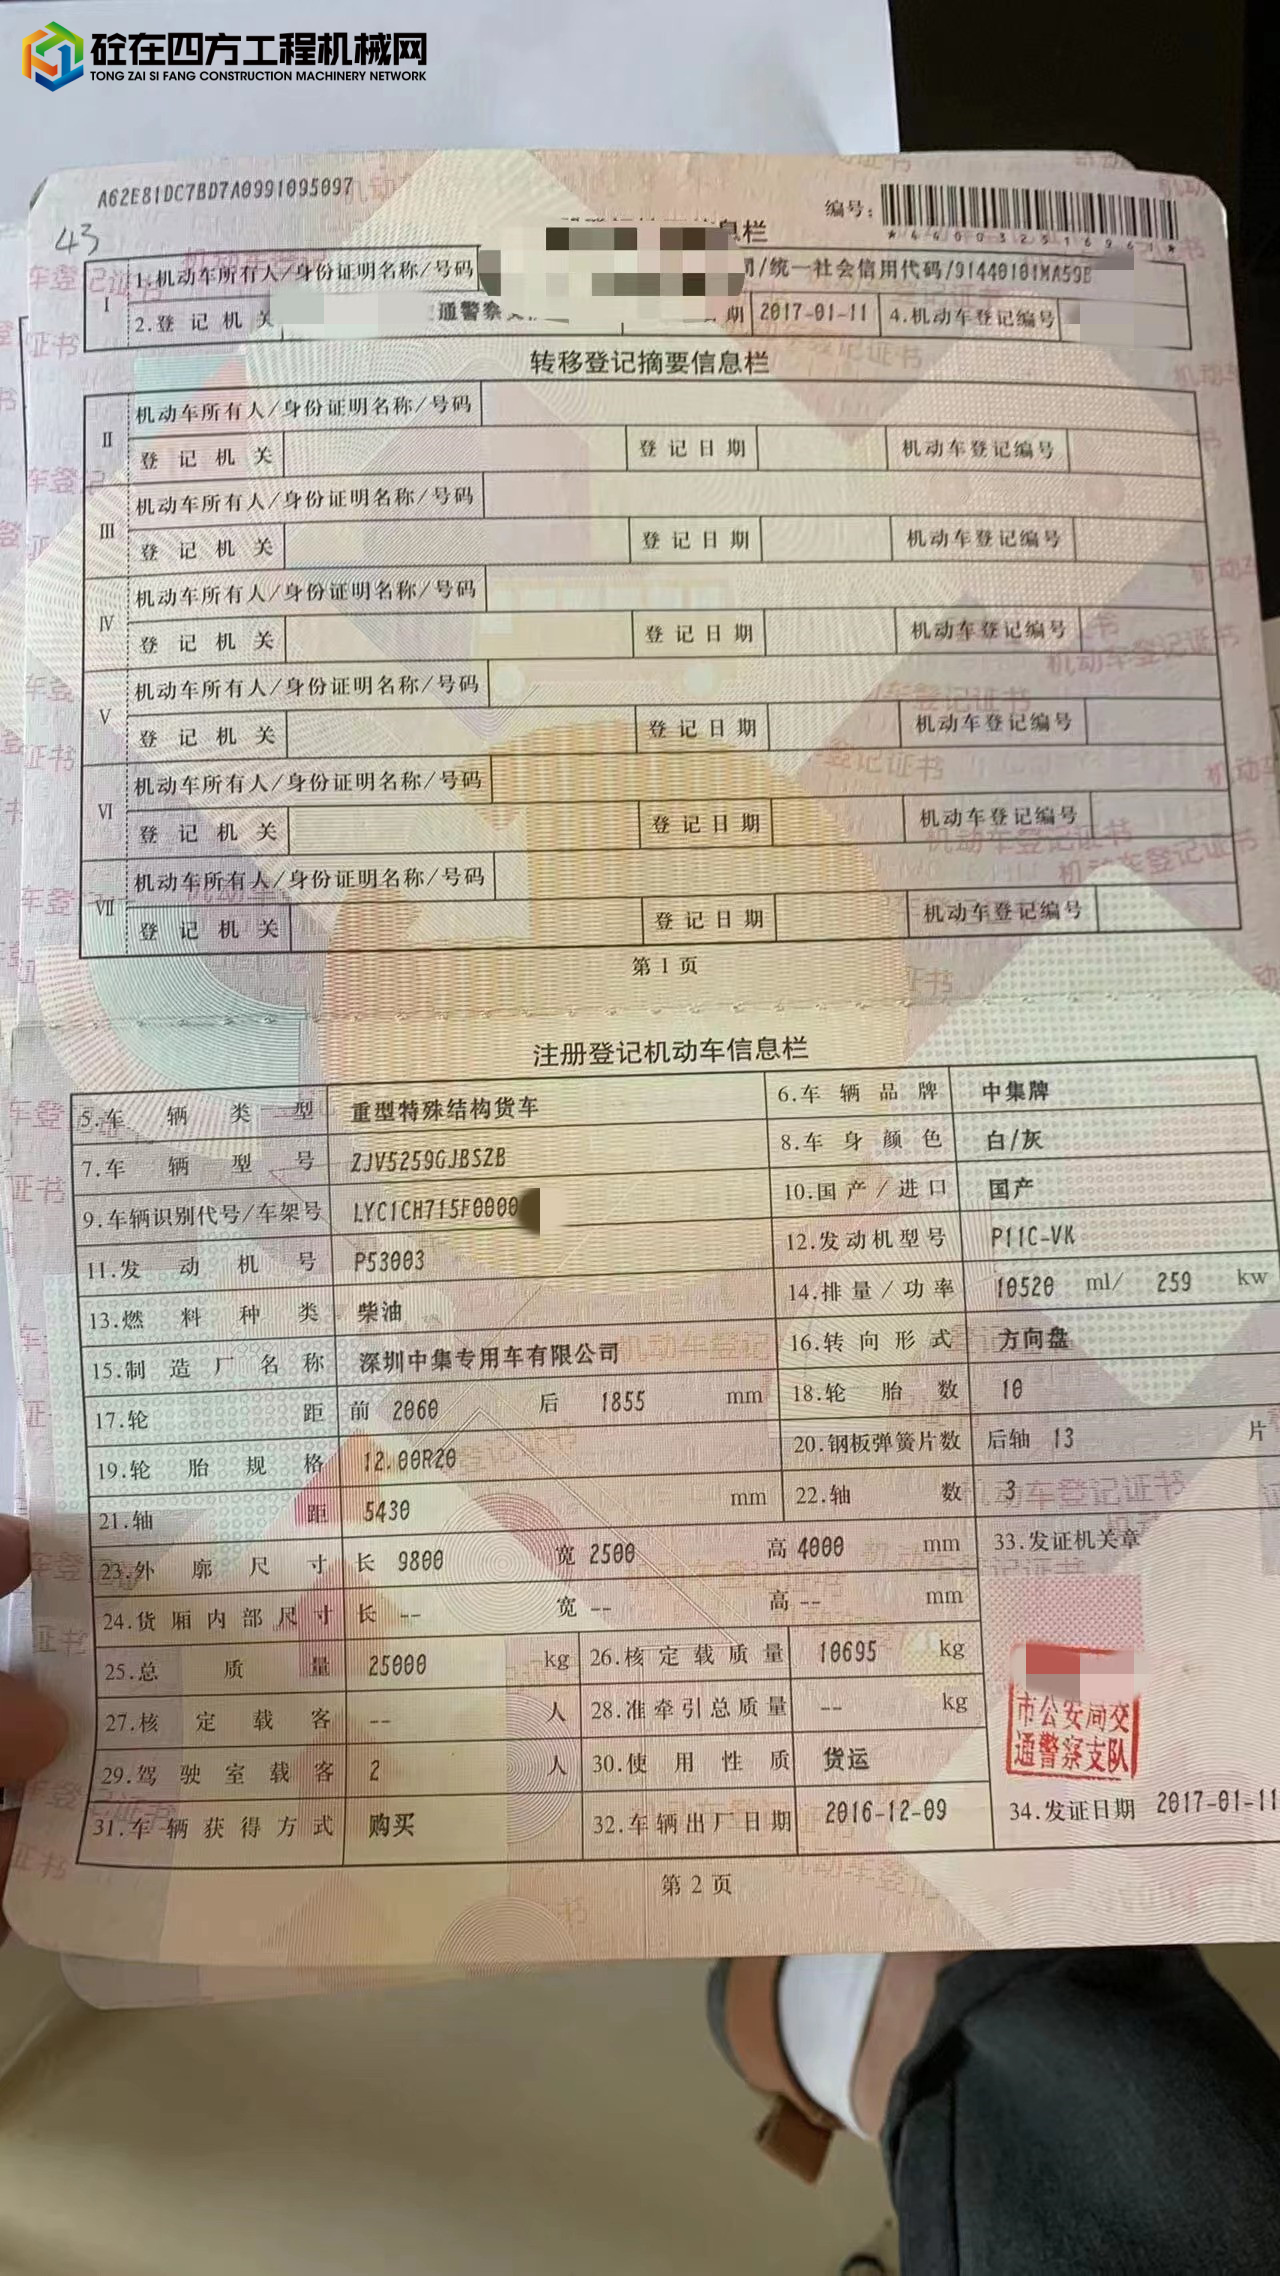 砼在四方工程机械网
TONG ZAI SI FANG CONSTRUCTION MACHINERY NETWORK
A62E81DC7BD7A0991095097
43
编号:
*440032516961*
息栏
I
1.机动车所有人/身份证明名称/号码 /统一社会信用代码/91440101MA59B
2.登记机关 通警察 期 2017-01-11 4.机动车登记编号
转移登记摘要信息栏
II 机动车所有人/身份证明名称/号码
登记机关 登记日期 机动车登记编号
III 机动车所有人/身份证明名称/号码
登记机关 登记日期 机动车登记编号
IV 机动车所有人/身份证明名称/号码
登记机关 登记日期 机动车登记编号
V 机动车所有人/身份证明名称/号码
登记机关 登记日期 机动车登记编号
VI 机动车所有人/身份证明名称/号码
登记机关 登记日期 机动车登记编号
VII 机动车所有人/身份证明名称/号码
登记机关 登记日期 机动车登记编号
第 1 页
注册登记机动车信息栏
5.车辆类型 重型特殊结构货车 6.车辆品牌 中集牌
7.车辆型号 ZJV5259GJBSZB 8.车身颜色 白/灰
9.车辆识别代号/车架号 LYC1CH715F0000 10.国产/进口 国产
11.发动机号 P53003 12.发动机型号 P11C-VK
13.燃料种类 柴油 14.排量/功率 10520 ml/ 259 kw
15.制造厂名称 深圳中集专用车有限公司 16.转向形式 方向盘
17.轮距 前 2060 后 1855 mm 18.轮胎数 10
19.轮胎规格 12.00R20 20.钢板弹簧片数 后轴 13 片
21.轴距 5430 mm 22.轴数 3
23.外廓尺寸 长 9800 宽 2500 高 4000 mm 33.发证机关章
24.货厢内部尺寸 长 -- 宽 -- 高 -- mm
25.总质量 25000 kg 26.核定载质量 10695 kg
27.核定载客 -- 人 28.准牵引总质量 -- kg
市公安局交
通警察支队
29.驾驶室载客 2 人 30.使用性质 货运
31.车辆获得方式 购买 32.车辆出厂日期 2016-12-09 34.发证日期 2017-01-11
第 2 页